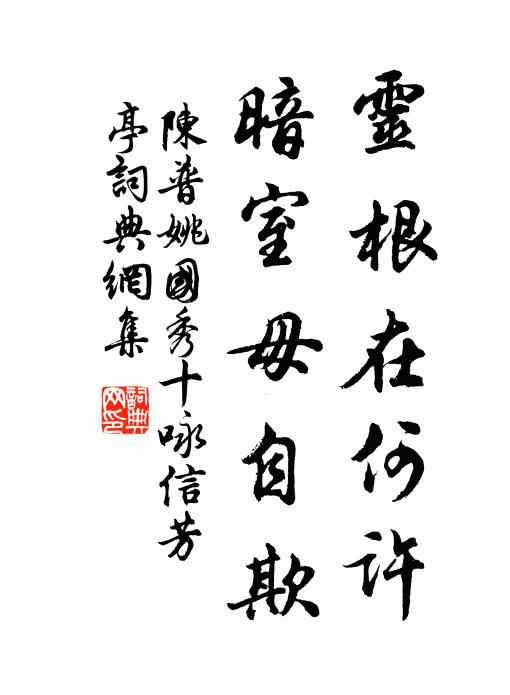 靈根在何許
暗室毋自欺
陳普姚國秀十咏信芳
亭詞典網集
詞典
网印